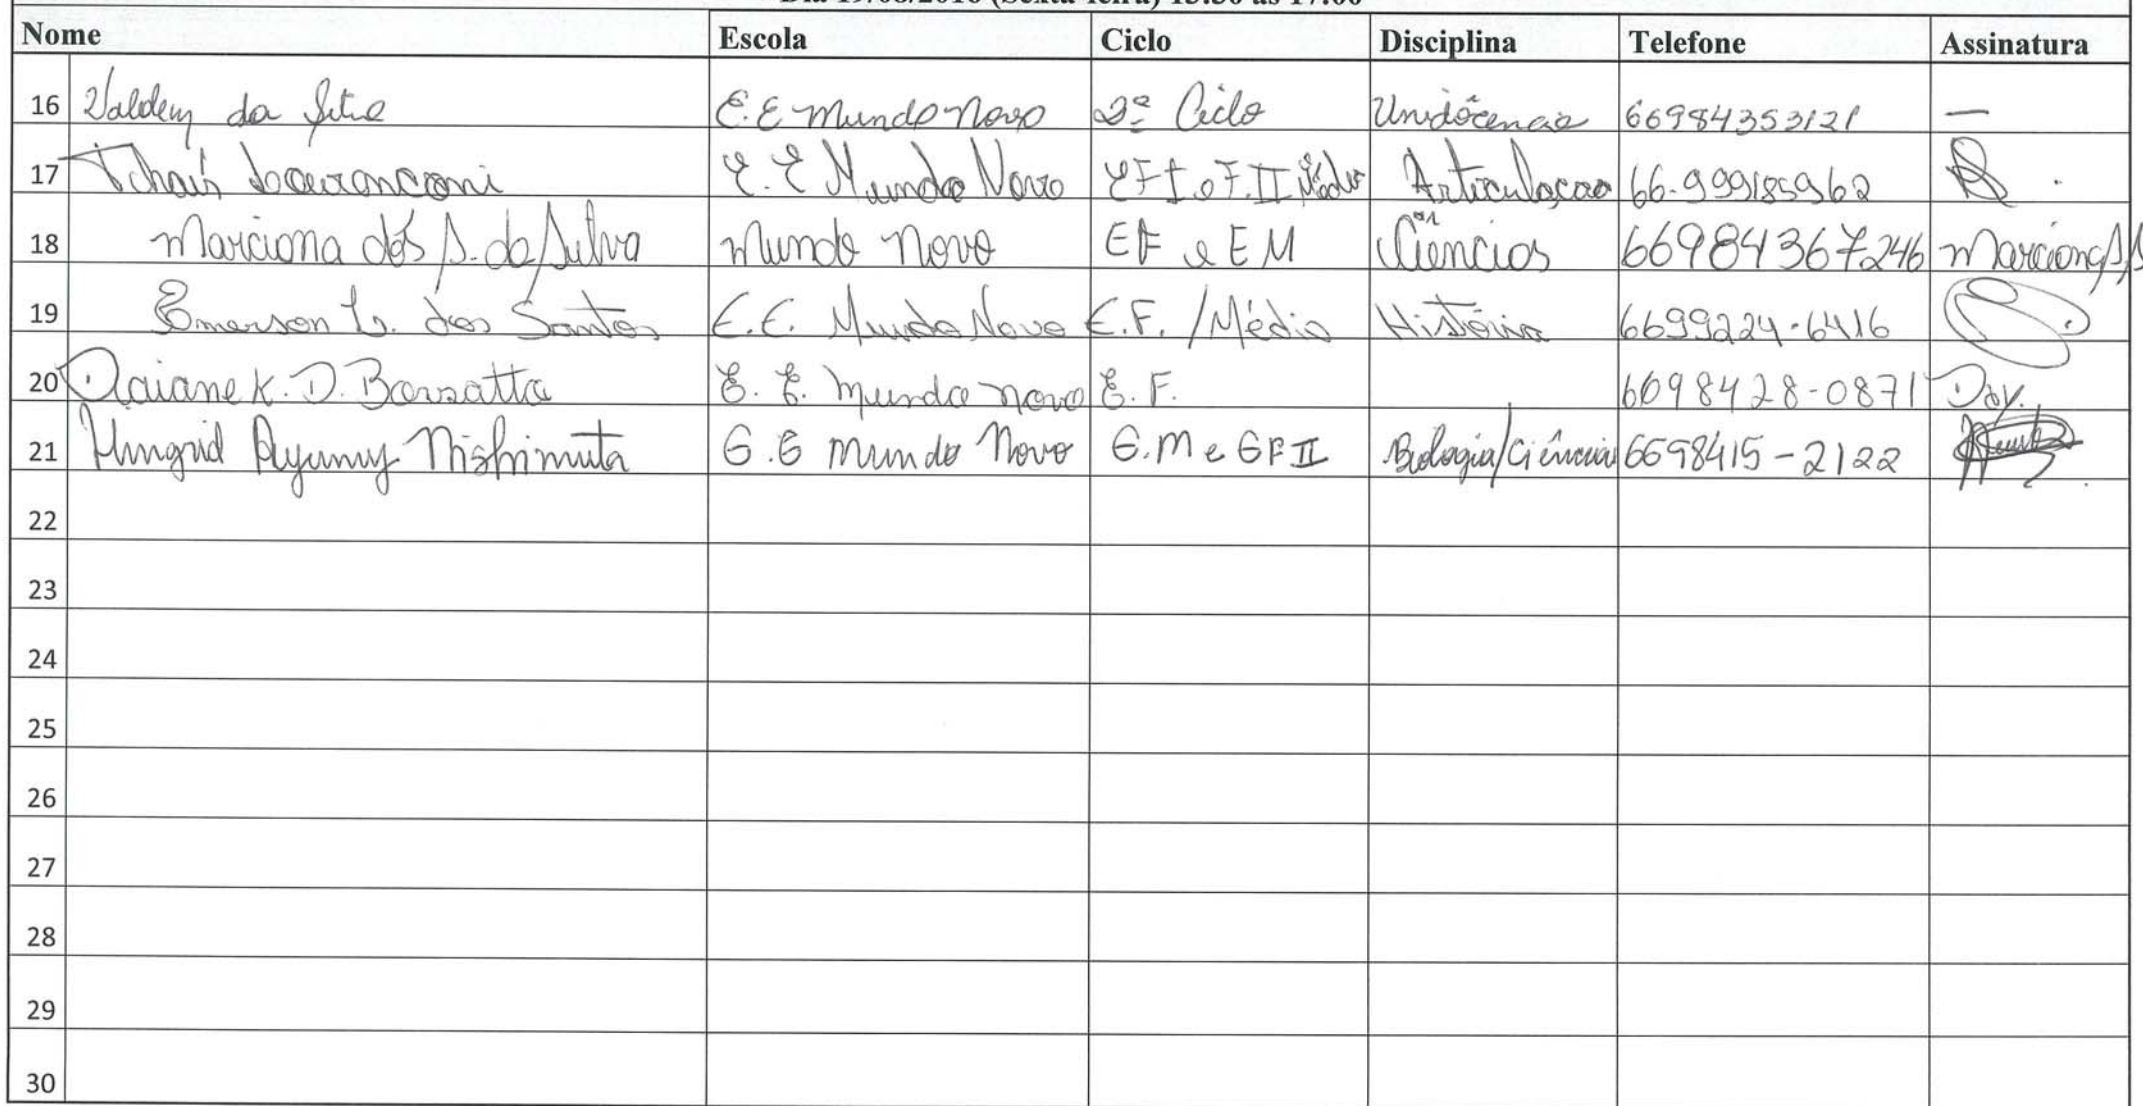 Dia 19/08/2016 (Sexta-feira) 13:30 às 17:00
Nome Escola Ciclo Disciplina Telefone Assinatura
16 Valdeny da Silva E.E Mundo Novo 2º Ciclo Unidôcencia 66984353121 —
17 Tchais Lauranconi E.E Mundo Novo EF I e F.II Médio Articulaçao 66-999185962
18 Marciona dos S. da Silva Mundo Novo EF e EM Ciências 66984367246 Marciona
19 Emerson L. dos Santos E.E. Mundo Novo E.F. /Médio História 6699224-6416
20 Daiane K. D. Borsatta E. E. Mundo novo E. F. 6698428-0871 Day.
21 Hingrid Ayumy Nishimuta E.E Mundo Novo E.M e EF II Biologia/Ciências 6698415-2122
22
23
24
25
26
27
28
29
30